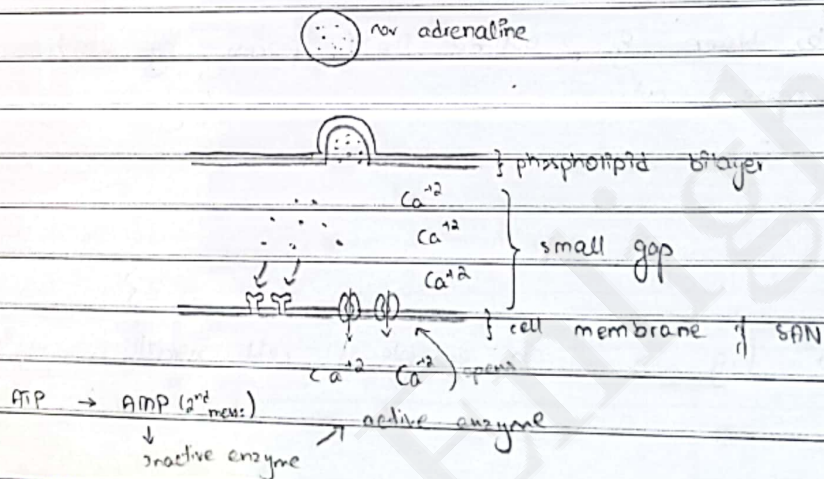 nor adrenaline
phospholipid bilayer
Ca+2
Ca+2
small gap
Ca+2
cell membrane of SAN
Ca+2 Ca+2 opens
ATP → AMP (2nd mess:)
inactive enzyme → active enzyme
Enligh